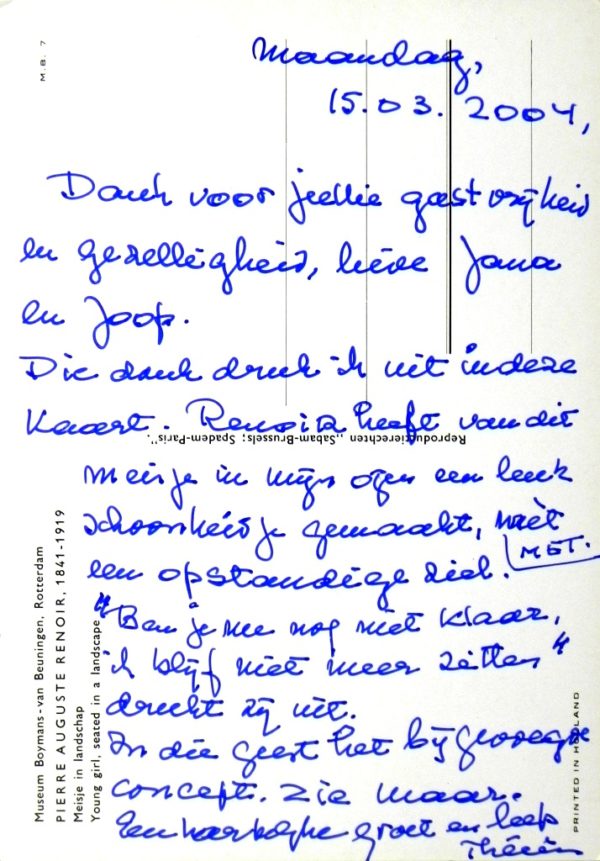 M.B. 7
Maandag,
15.03.2004,
Dank voor jullie gastvrijheid
en gezelligheid, lieve Jana
en Joop.
Die dank druk ik uit in deze
kaart. Renoir heeft van dit
Reproductierechten „Sabam-Brussels; Spadem-Paris”.
meisje in mijn ogen een leuk
schoonheidje gemaakt,
MET.
een opstandige ziel.
"Ben je nu nog niet klaar,
ik blijf niet meer zitten"
drukt zij uit.
In die geest het bijgevoegde
concept. Zie maar.
Een hartelijke groet en
Museum Boymans-van Beuningen, Rotterdam
PIERRE AUGUSTE RENOIR, 1841-1919
Meisje in landschap
Young girl, seated in a landscape
PRINTED IN HOLLAND